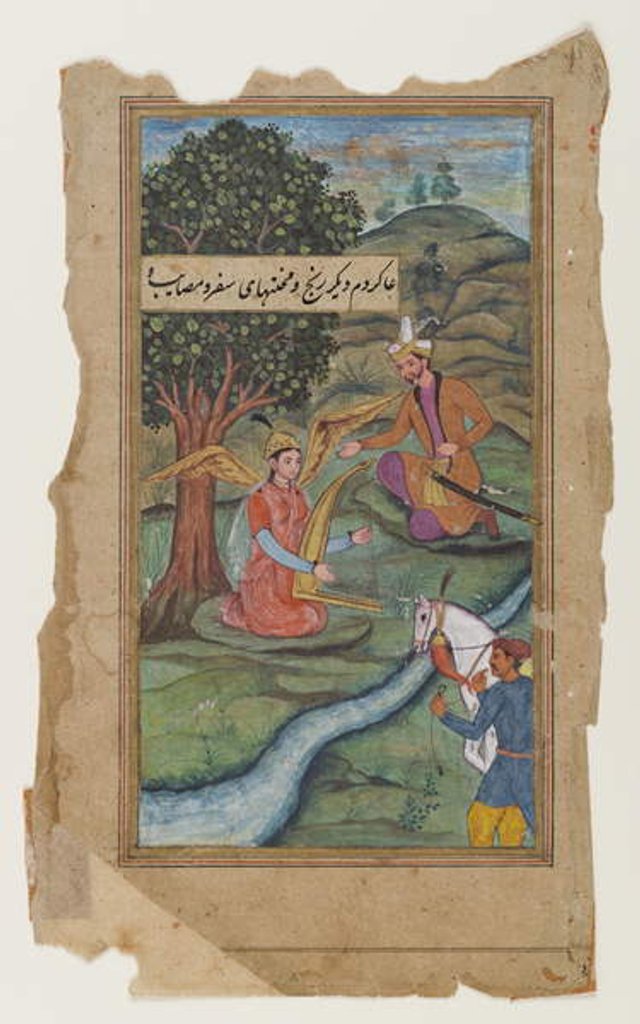 عا کردم دیکر رنج و محنتهای سفر و مصایب و